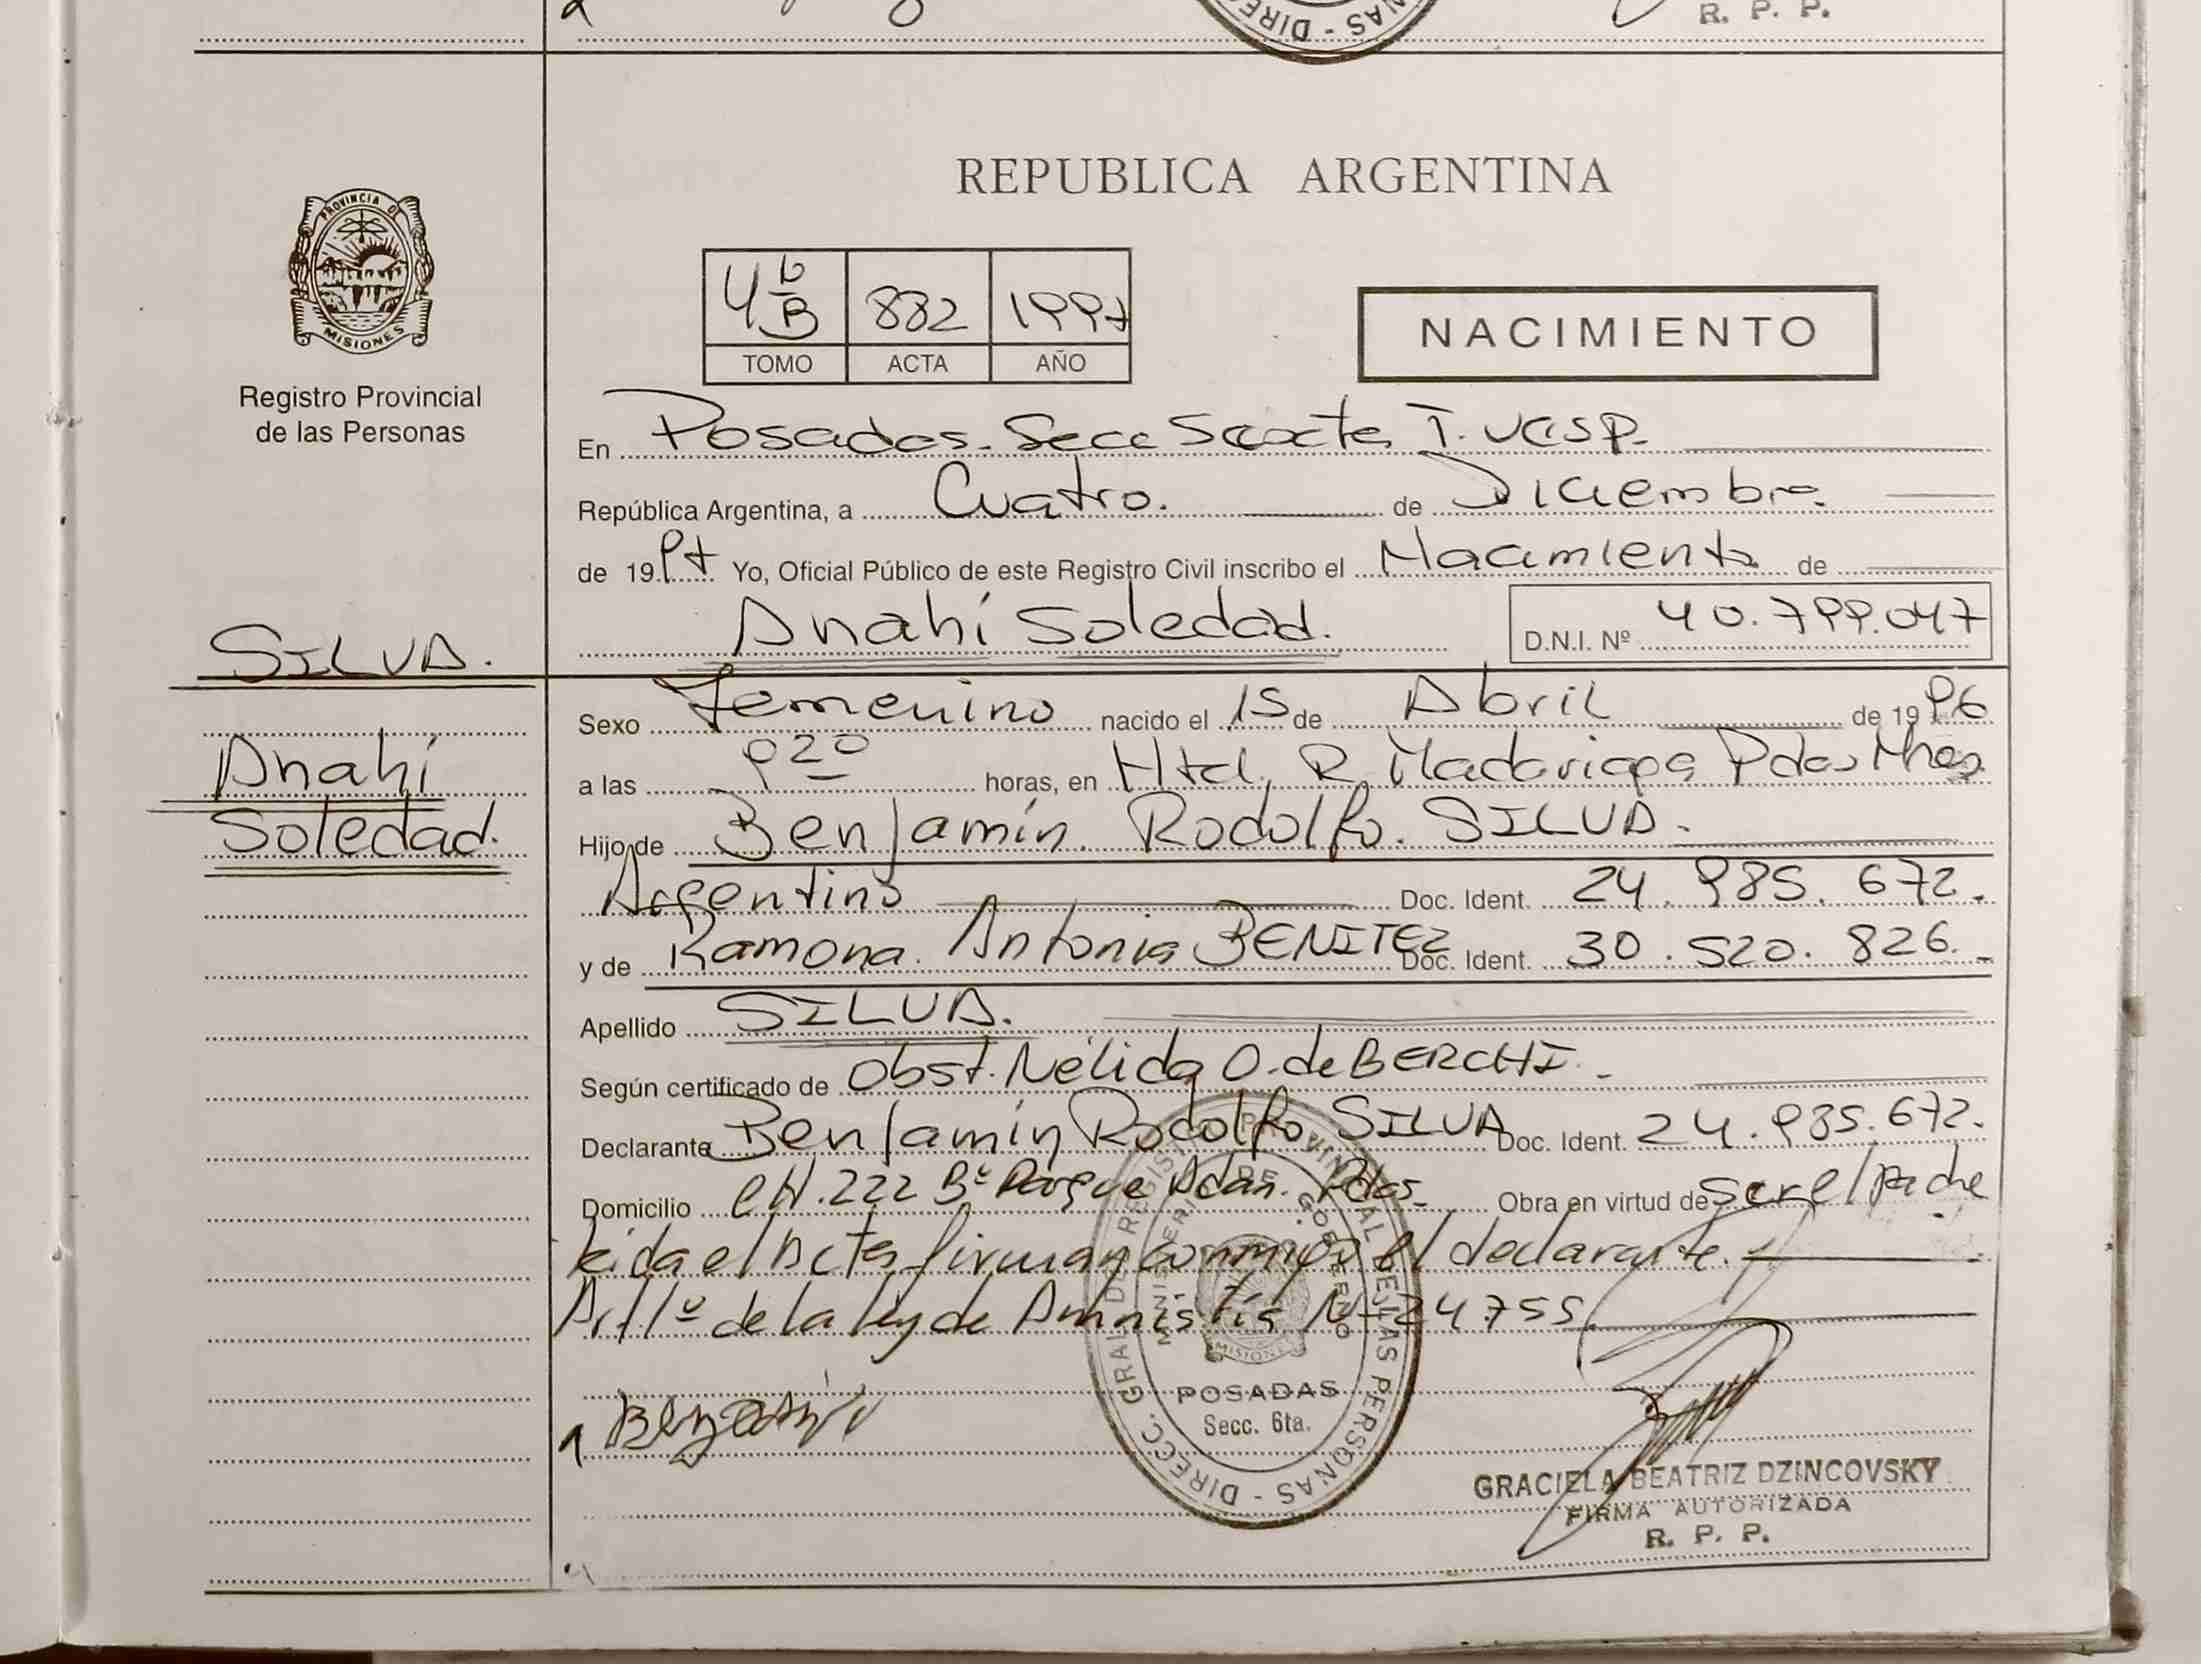 R. P. P.
NAS - DIREC
REPUBLICA ARGENTINA
PROVINCIA DE
MISIONES
4 b/B 882 1997
TOMO ACTA AÑO
NACIMIENTO
Registro Provincial
de las Personas
En Posadas. Secc Sexta T.
República Argentina, a Cuatro. de Diciembre.
de 1997 Yo, Oficial Público de este Registro Civil inscribo el Nacimiento de
Anahí Soledad. D.N.I. Nº 40.799.047
SILVA.
Anahí
Soledad.
Sexo Femenino nacido el 15 de Abril de 1996
a las 9 20 horas, en Htal. R. Madariaga Pdas Mnes
Hijo de Benjamín. Rodolfo. SILVA.
Argentino Doc. Ident. 24.985.672.
y de Ramona. Antonia BENITEZ Doc. Ident. 30.520.826.
Apellido SILVA.
Según certificado de Obst. Nélida O. de BERCHI.
Declarante Benjamín Rodolfo SILVA Doc. Ident. 24.985.672.
Domicilio CH. 222 Bº Parque Adan. Pdas. Obra en virtud de ser el padre
leida el Acta firman conmigo el declarante.
Art 1º de la ley de Amnistía Nº 24755.
DIRECC. GRAL DE REGISTRO PROVINCIAL DE LAS PERSONAS
MINISTERIO DE GOBIERNO
MISIONES
POSADAS
Secc. 6ta.
Benjamin
GRACIELA BEATRIZ DZINCOVSKY
FIRMA AUTORIZADA
R. P. P.